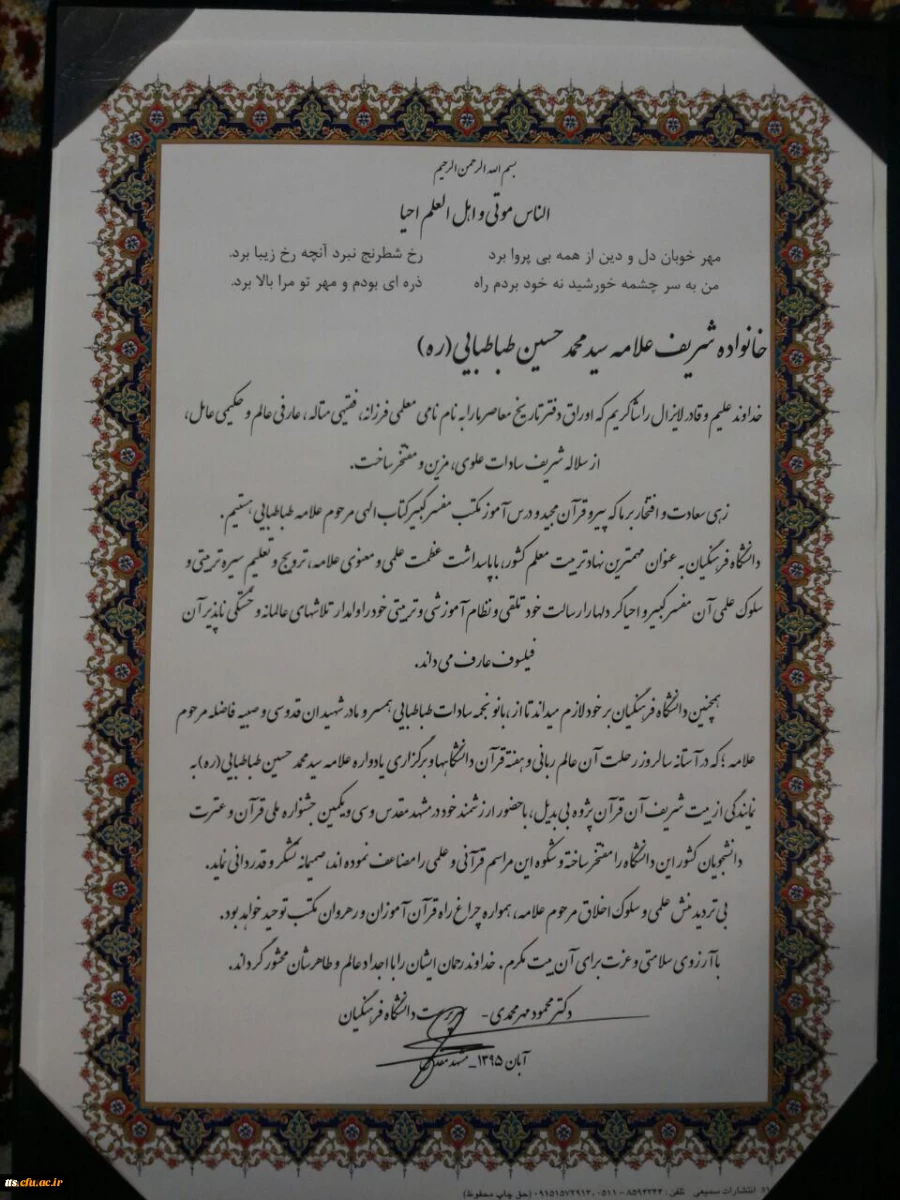 بسم الله الرحمن الرحیم
الناس موتی و اهل العلم احیا
مهر خوبان دل و دین از همه بی پروا برد رخ شطرنج نبرد آنچه رخ زیبا برد.
من به سر چشمه خورشید نه خود بردم راه ذره ای بودم و مهر تو مرا بالا برد.
خانواده شریف علامه سید محمد حسین طباطبایی (ره)
خداوند علیم و قادر لایزال را شاکریم که اوراق دفتر تاریخ معاصر ما را به نام نامی معلمی فرزانه، فقیهی متاله، عارفی عالم و حکیمی عامل،
از سلاله شریف سادات علوی، مزین و مفتخر ساخت.
زهی سعادت و افتخار بر ما که پیرو قرآن مجید و درس آموز مکتب مفسر کبیر کتاب الهی مرحوم علامه طباطبایی هستیم.
دانشگاه فرهنگیان به عنوان مهمترین نهاد تربیت معلم کشور، با پاسداشت عظمت علمی و معنوی علامه، ترویج و تعلیم سیره تربیتی و
سلوک علمی آن مفسر کبیر و احیاگر دلها را رسالت خود تلقی و نظام آموزشی و تربیتی خود را وامدار تلاشهای عالمانه و خستگی ناپذیر آن
فیلسوف عارف می داند.
همچنین دانشگاه فرهنگیان بر خود لازم میداند تا از، بانو نجمه سادات طباطبایی همسر و مادر شهیدان قدوسی و صبیه فاضله مرحوم
علامه ؛ که در آستانه سالروز رحلت آن عالم ربانی و هفته قرآن دانشگاهها و برگزاری یادواره علامه سید محمد حسین طباطبایی (ره) به
نمایندگی از بیت شریف آن قرآن پژوه بی بدیل، با حضور ارزشمند خود در مشهد مقدس و سی و یکمین جشنواره ملی قرآن و عترت
دانشجویان کشور این دانشگاه را مفتخر ساخته و شکوه این مراسم قرآنی و علمی را مضاعف نموده اند، صمیمانه تشکر و قدردانی نماید.
بی تردید منش علمی و سلوک اخلاق مرحوم علامه، همواره چراغ راه قرآن آموزان و رهروان مکتب توحید خواهد بود.
با آرزوی سلامتی و عزت برای آن بیت مکرم. خداوند رحمان ایشان را با اجداد عالم و طاهرشان محشور گرداند.
دکتر محمود مهرمحمدی - سرپرست دانشگاه فرهنگیان
آبان ۱۳۹۵_ مشهد مقدس
انتشارات سمیعی تلفن: ۸۵۹۴۲۴۴ - ۰۵۱۱ (حق چاپ محفوظ)
tts.cfu.ac.ir